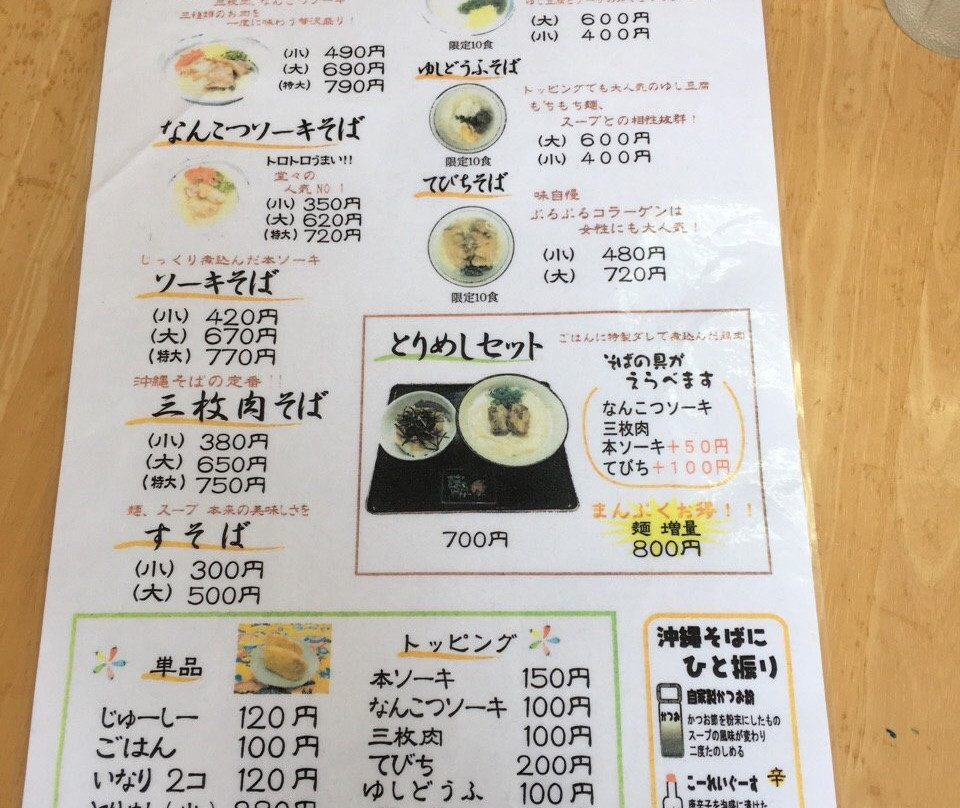 三枚肉、なんこつソーキ
三種類のお肉を
一度に味わう贅沢盛り！
(小) 490円
(大) 690円
(特大) 790円
なんこつソーキそば
トロトロうまい!!
堂々の
人気NO 1
(小) 350円
(大) 620円
(特大) 720円
じっくり煮込んだ本ソーキ
ソーキそば
(小) 420円
(大) 670円
(特大) 770円
沖縄そばの定番!!
三枚肉そば
(小) 380円
(大) 650円
(特大) 750円
麺、スープ 本来の美味しさを
すそば
(小) 300円
(大) 500円
(大) 600円
(小) 400円
限定10食
ゆしどうふそば
トッピングでも大人気のゆし豆腐
もちもち麺、
スープとの相性抜群！
(大) 600円
(小) 400円
限定10食
てびちそば
味自慢
ぷるぷるコラーゲンは
女性にも大人気！
(小) 480円
(大) 720円
限定10食
とりめしセット
ごはんに特製ダレで煮込んだ鶏肉
そばの具が
えらべます
なんこつソーキ
三枚肉
本ソーキ+50円
てびち+100円
700円
まんぷくお得！！
麺 増量
800円
単品
じゅーしー 120円
ごはん 100円
いなり 2コ 120円
トッピング
本ソーキ 150円
なんこつソーキ 100円
三枚肉 100円
てびち 200円
ゆしどうふ 100円
沖縄そばに
ひと振り
自家製かつお粉
かつお
かつお節を粉末にしたもの
スープの風味が変わり
二度たのしめる
こーれいぐーす 辛
唐辛子を泡盛に漬けた